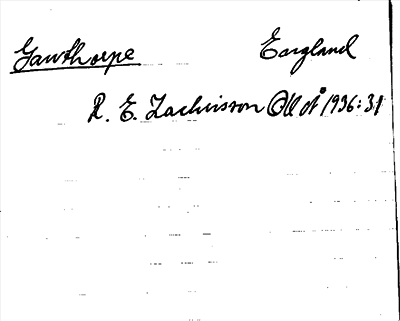 Gawthorpe England
R. E. Zachrisson 1936:31